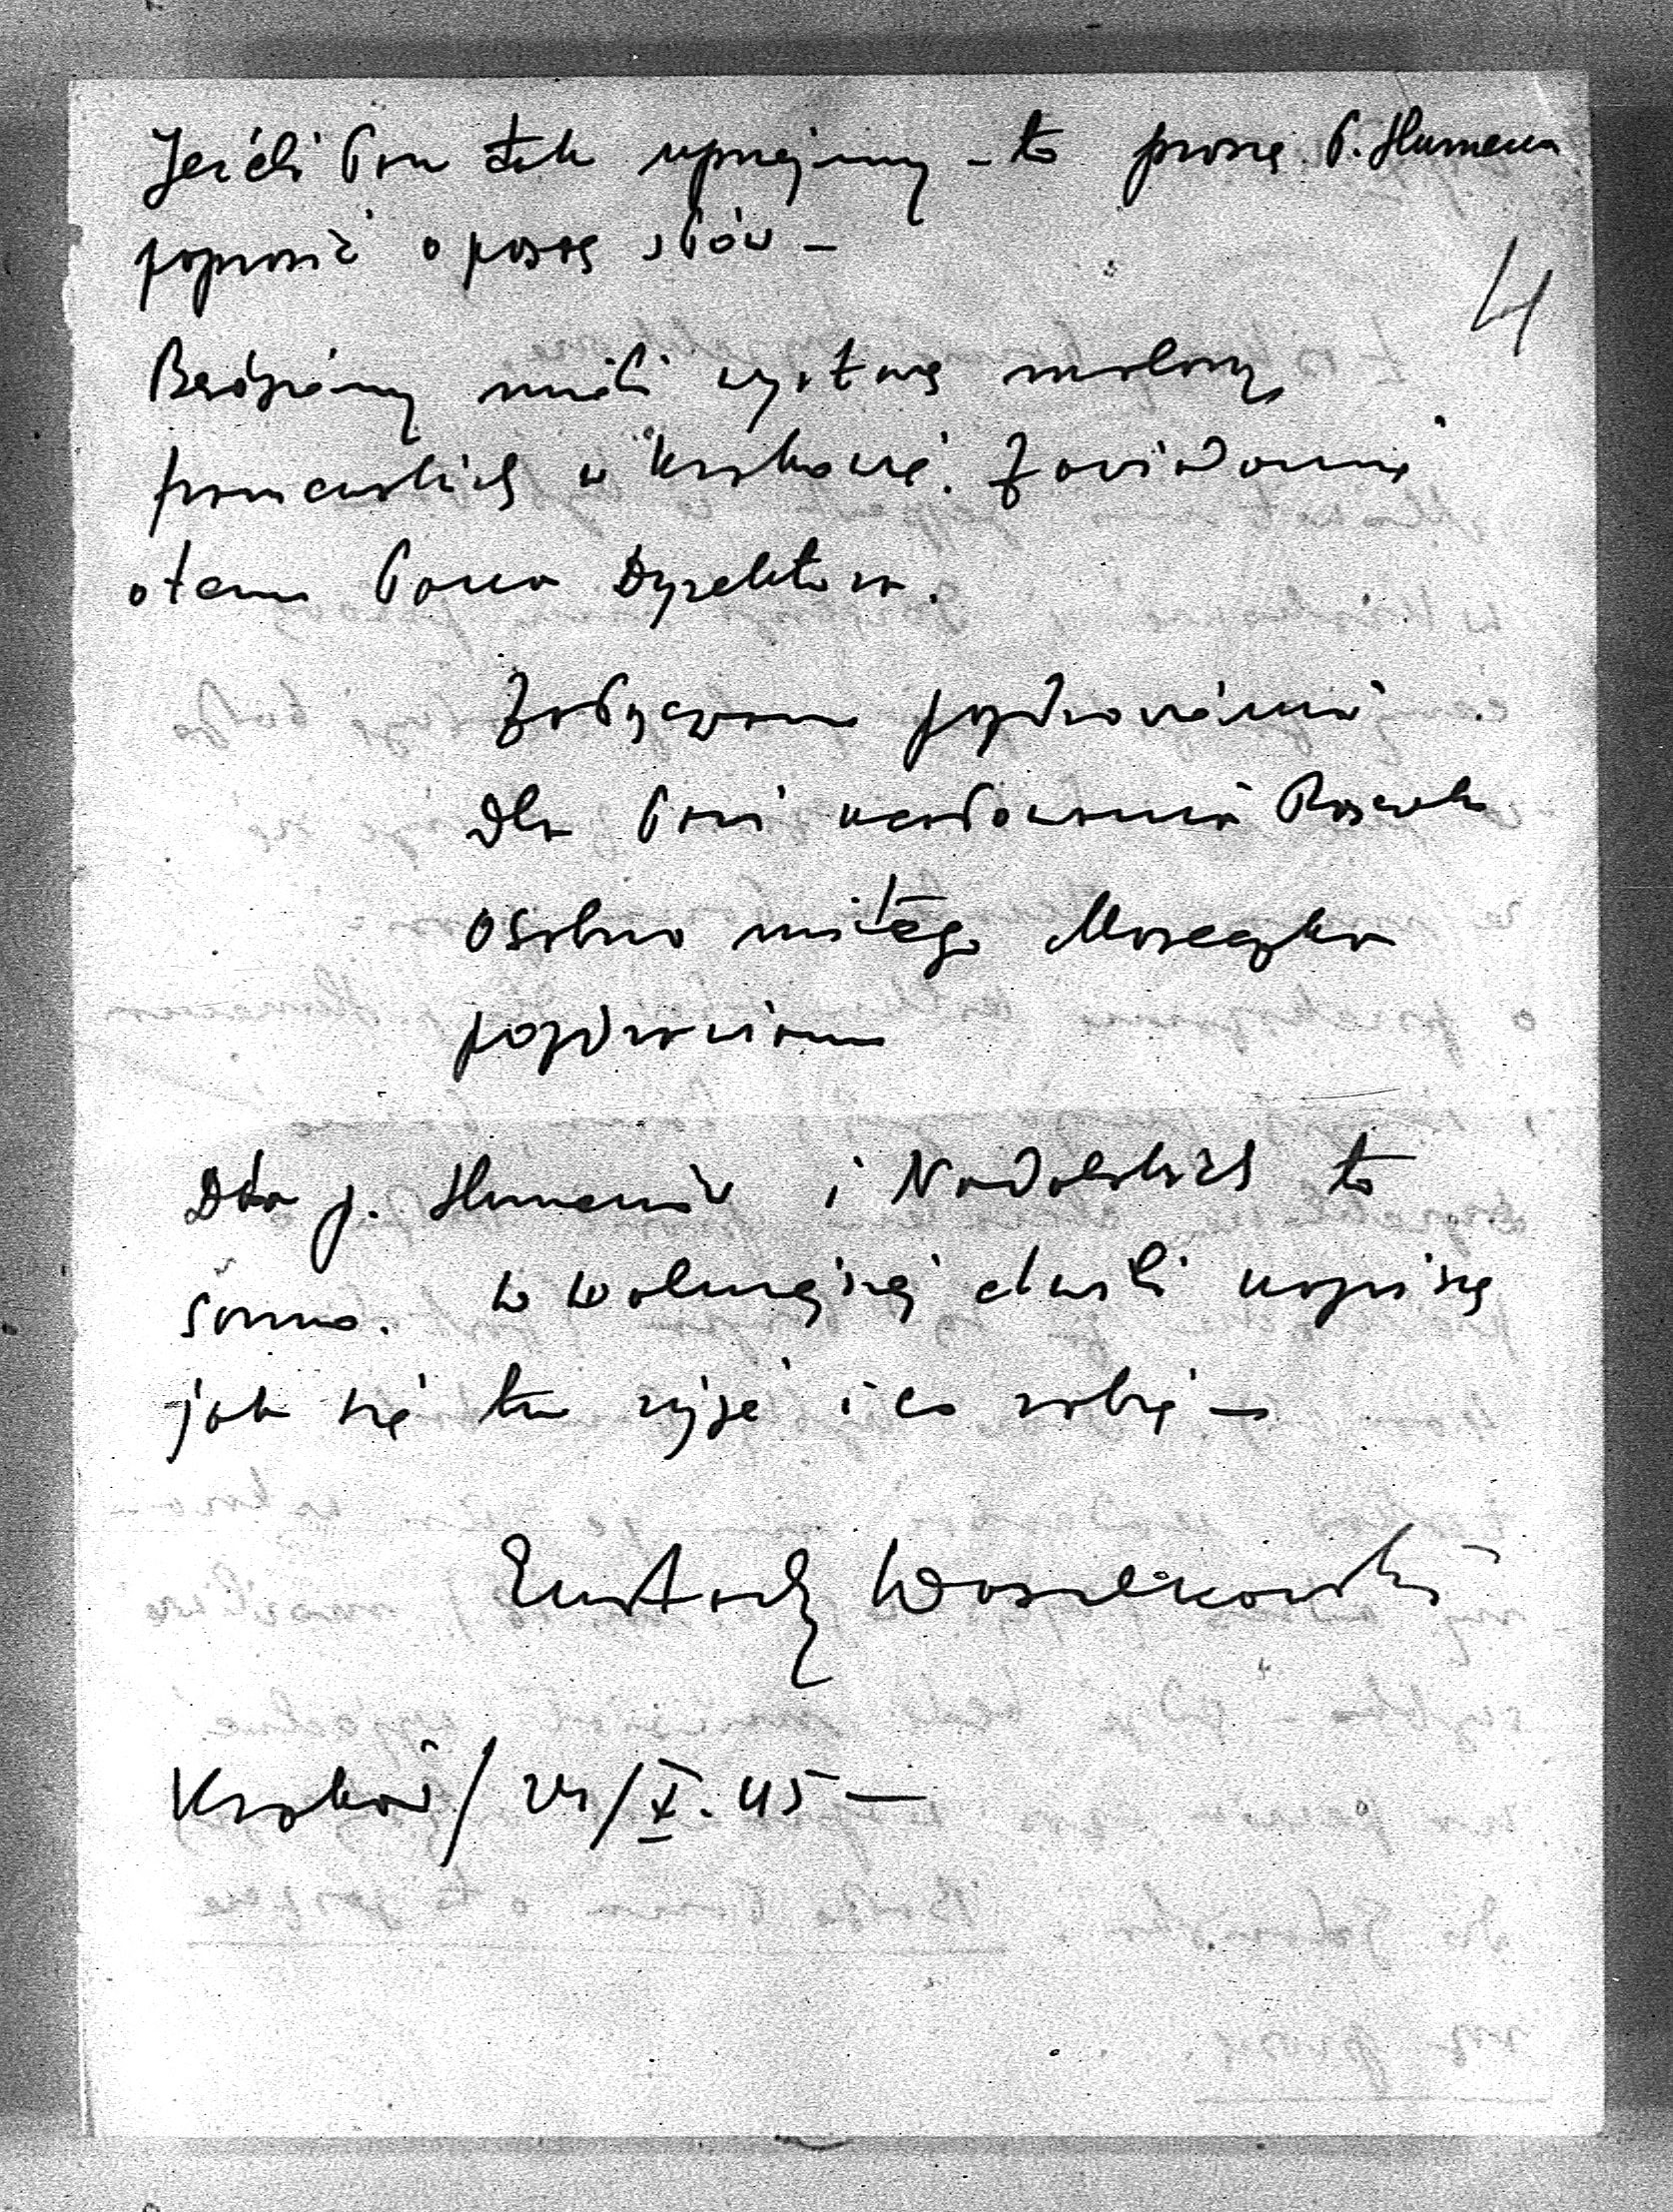 Jeśli Pan tak uprzejmy – to proszę P. Humena
poprosić o parę słów –
4
Będziemy mieli wystawę malarzy
francuskich w Krakowie. Zawiadomię
o tem Pana Dyrektora.
Załączam pozdrowienia
Dla Pani ucałowania Rączek
Osobno miłego Maseczka
pozdrawiam
Dla p. Humenów i Nadolskich to
samo. W wolniejszej chwili napiszę
jak się tu żyje i co robię –
Eustachy Wasilkowski
Kraków / 24 / X. 45 –